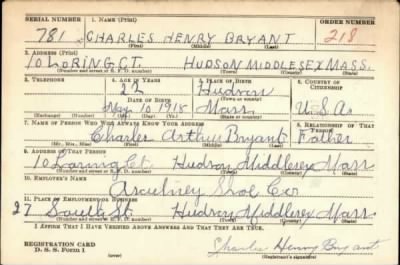 SERIAL NUMBER 1. NAME (Print) ORDER NUMBER
781 CHARLES HENRY BRYANT 218
(First) (Middle) (Last)
2. ADDRESS (Print)
10 LORING CT. HUDSON MIDDLESEX MASS.
(Number and street or R. F. D. number) (Town) (County) (State)
3. TELEPHONE 4. AGE IN YEARS 5. PLACE OF BIRTH 6. COUNTRY OF CITIZENSHIP
22 Hudson
DATE OF BIRTH (Town or county)
May 10 1918 Mass. U.S.A.
(Exchange) (Number) (Mo.) (Day) (Yr.) (State or country)
7. NAME OF PERSON WHO WILL ALWAYS KNOW YOUR ADDRESS 8. RELATIONSHIP OF THAT PERSON
Charles Arthur Bryant Father
(Mr., Mrs., Miss) (First) (Middle) (Last)
9. ADDRESS OF THAT PERSON
10 Loring Ct Hudson Middlesex Mass
(Number and street or R. F. D. number) (Town) (County) (State)
10. EMPLOYER'S NAME
Shoe Co
11. PLACE OF EMPLOYMENT OR BUSINESS
27 South St. Hudson Middlesex Mass.
(Number and street or R. F. D. number) (Town) (County) (State)
I AFFIRM THAT I HAVE VERIFIED ABOVE ANSWERS AND THAT THEY ARE TRUE.
REGISTRATION CARD
D. S. S. Form 1 Charles Henry Bryant
(over) (Registrant's signature)